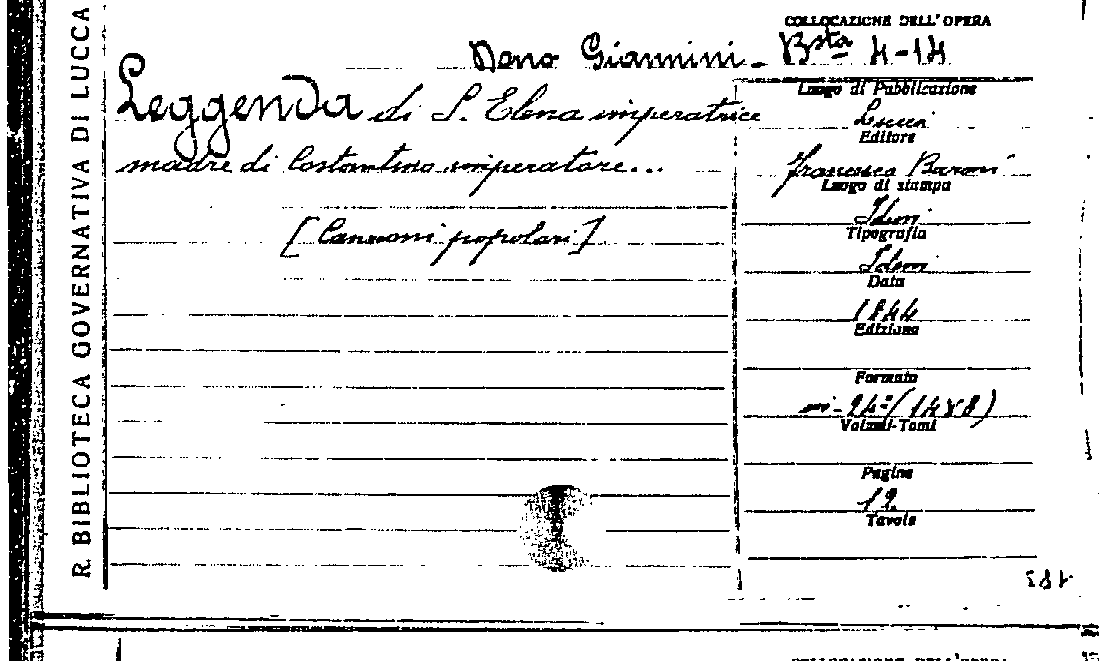 R. BIBLIOTECA GOVERNATIVA DI LUCCA
COLLOCAZIONE DELL'OPERA
Dono Giannini - Bsta 4-14
Leggenda di S. Elena imperatrice
madre di Costantino imperatore...
[Canzoni popolari]
Luogo di Pubblicazione
Lucca
Editore
Francesco Baroni
Luogo di stampa
Idem
Tipografia
Idem
Data
1844
Edizione
Formato
in-24° (14x8)
Volumi-Tomi
Pagine
12
Tavole
COLLOCAZIONE DELL'OPERA